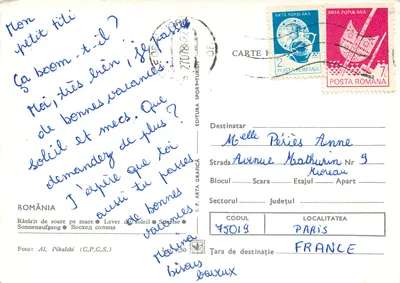 Mon
petit titi
Ça boom-t-il?
Moi, très bien, je passe
de bonnes vacances.
soleil et mecs. Que
demandez de plus?
J'espère que toi
aussi tu passes
de bonnes
vacances
Marina
bisous
baveux
ROMÂNIA
Răsărit de soare pe mare • Lever de soleil •
Sonnenaufgang • Восход солнца
Foto: Al. Pikulski (C.P.G.S.)
I. P. ARTA GRAFICĂ
EDITURA SPORT-TURISM
CARTE
ARTA POPULARĂ
2
POSTA ROMANA
ARTA POPULARĂ
7
POSTA ROMANA
Destinatar
Melle Périès Anne
Strada Avenue Mathurin Nr 9
Moreau
Blocul Scara Etajul Apart
Sectorul Județul
CODUL LOCALITATEA
75019 PARIS
Țara de destinație FRANCE